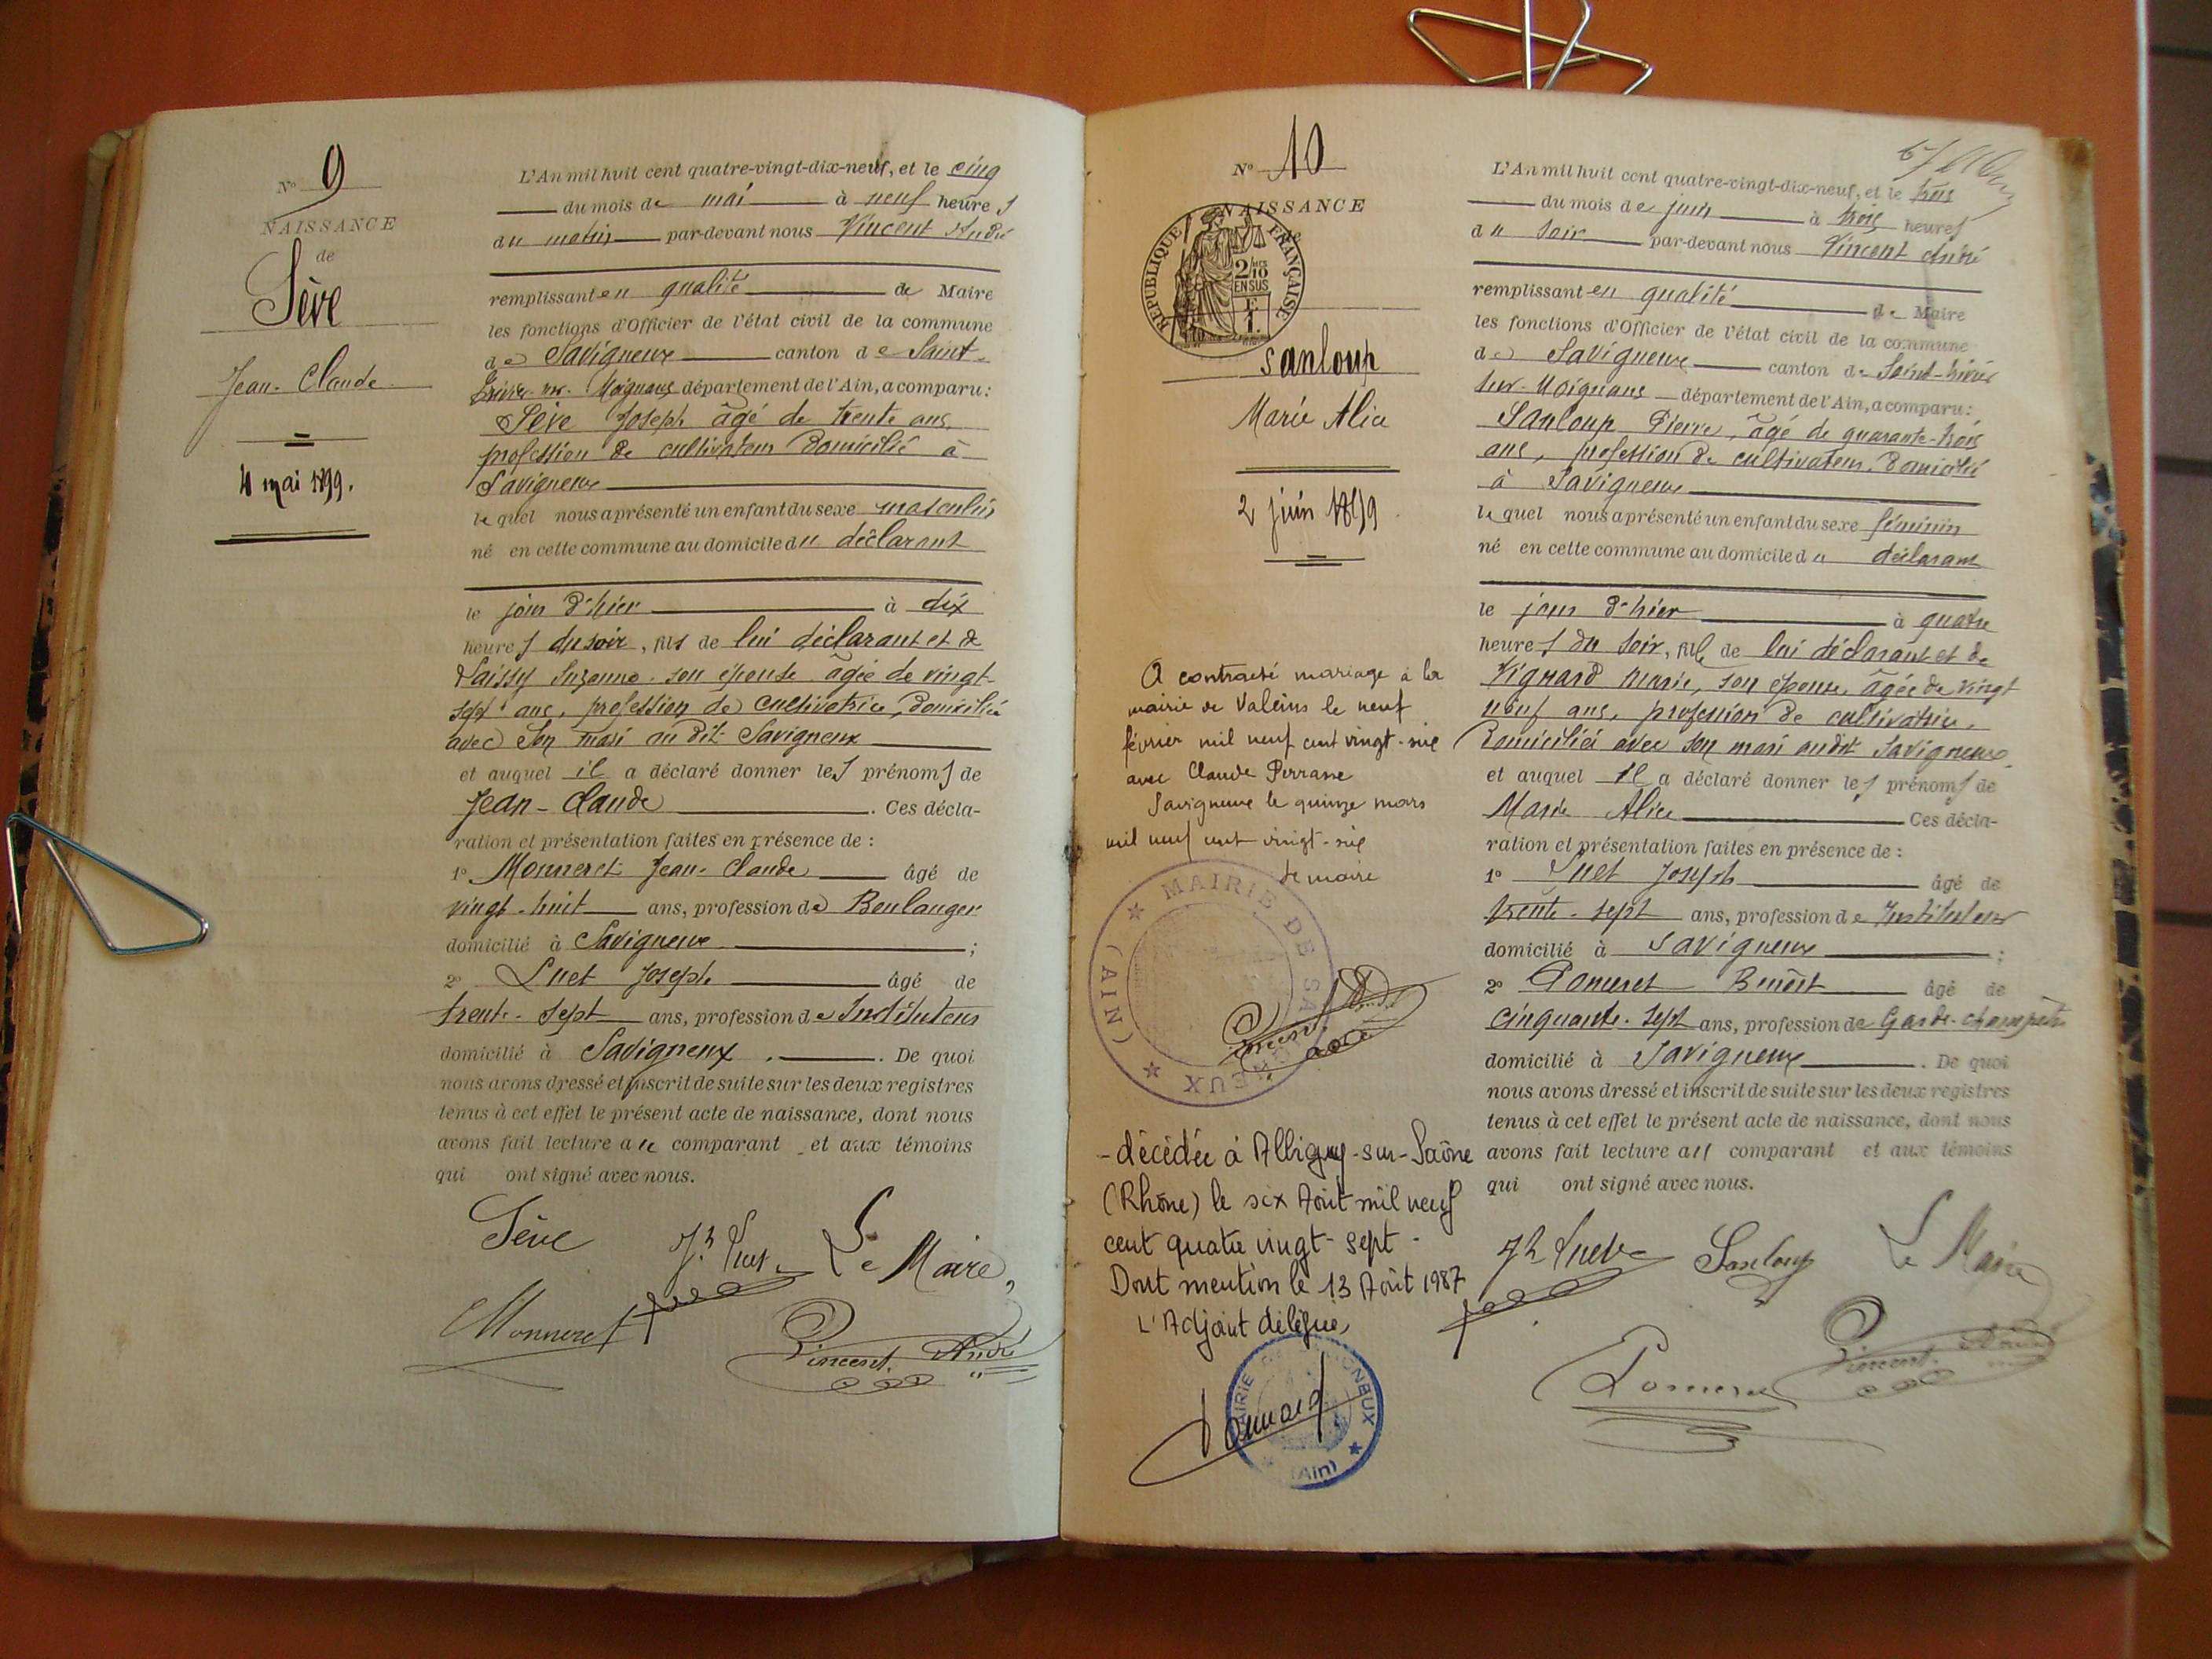 N° 9
NAISSANCE
de
Sève
Jean-Claude
4 mai 1899.
L'An mil huit cent quatre-vingt-dix-neuf, et le cinq
du mois de mai à neuf heures
du matin par-devant nous Vincent André
remplissant en qualité de Maire
les fonctions d'Officier de l'état civil de la commune
de Savigneux canton de Saint-
Trivier sur Moignans département de l'Ain, a comparu :
Sève Joseph âgé de trente ans
profession de cultivateur domicilié à
Savigneux
le quel nous a présenté un enfant du sexe masculin
né en cette commune au domicile du déclarant
le jour d'hier à dix
heures du soir, fils de lui déclarant et de
Suzanne son épouse âgée de vingt-
sept ans, profession de cultivatrice, domiciliée
avec son mari au dit Savigneux
et auquel il a déclaré donner les prénoms de
Jean-Claude. Ces décla-
ration et présentation faites en présence de :
1° Monneret Jean-Claude âgé de
vingt-huit ans, profession de Boulanger
domicilié à Savigneux ;
2° Luet Joseph âgé de
trente-sept ans, profession de Instituteur
domicilié à Savigneux. De quoi
nous avons dressé et inscrit de suite sur les deux registres
tenus à cet effet le présent acte de naissance, dont nous
avons fait lecture au comparant et aux témoins
qui ont signé avec nous.
Sève Jh Luet Le Maire,
Monneret Vincent André
N° 10
NAISSANCE
de
RÉPUBLIQUE FRANÇAISE
2/10
EN SUS
Sanloup
Marie Alice
2 juin 1899
A contracté mariage à la
mairie de Valeins le neuf
février mil neuf cent vingt-six
avec Claude Perrasse
Savigneux le quinze mars
mil neuf cent vingt-six
Le maire
MAIRIE DE SAVIGNEUX (AIN)
Vincent André
- décédée à Albigny-sur-Saône
(Rhône) le six Août mil neuf
cent quatre vingt-sept -
Dont mention le 13 Août 1987
L'Adjoint délégué,
MAIRIE (Ain)
L'An mil huit cent quatre-vingt-dix-neuf, et le trois
du mois de juin à trois heures
du soir par-devant nous Vincent André
remplissant en qualité de Maire
les fonctions d'Officier de l'état civil de la commune
de Savigneux canton de Saint-Trivier
sur-Moignans département de l'Ain, a comparu :
Sanloup Pierre, âgé de quarante-trois
ans, profession de cultivateur, domicilié
à Savigneux
le quel nous a présenté un enfant du sexe féminin
né en cette commune au domicile du déclarant
le jour d'hier à quatre
heures du soir, fille de lui déclarant et de
Vignard Marie, son épouse, âgée de vingt
neuf ans, profession de cultivatrice,
domiciliée avec son mari audit Savigneux
et auquel il a déclaré donner les prénoms de
Marie Alice Ces décla-
ration et présentation faites en présence de :
1° Luet Joseph âgé de
trente-sept ans, profession de Instituteur
domicilié à Savigneux ;
2° Pomeret Benoît âgé de
cinquante-sept ans, profession de Garde-champêtre
domicilié à Savigneux. De quoi
nous avons dressé et inscrit de suite sur les deux registres
tenus à cet effet le présent acte de naissance, dont nous
avons fait lecture au comparant et aux témoins
qui ont signé avec nous.
Jh Luet Sanloup Le Maire
Pomeret Vincent André